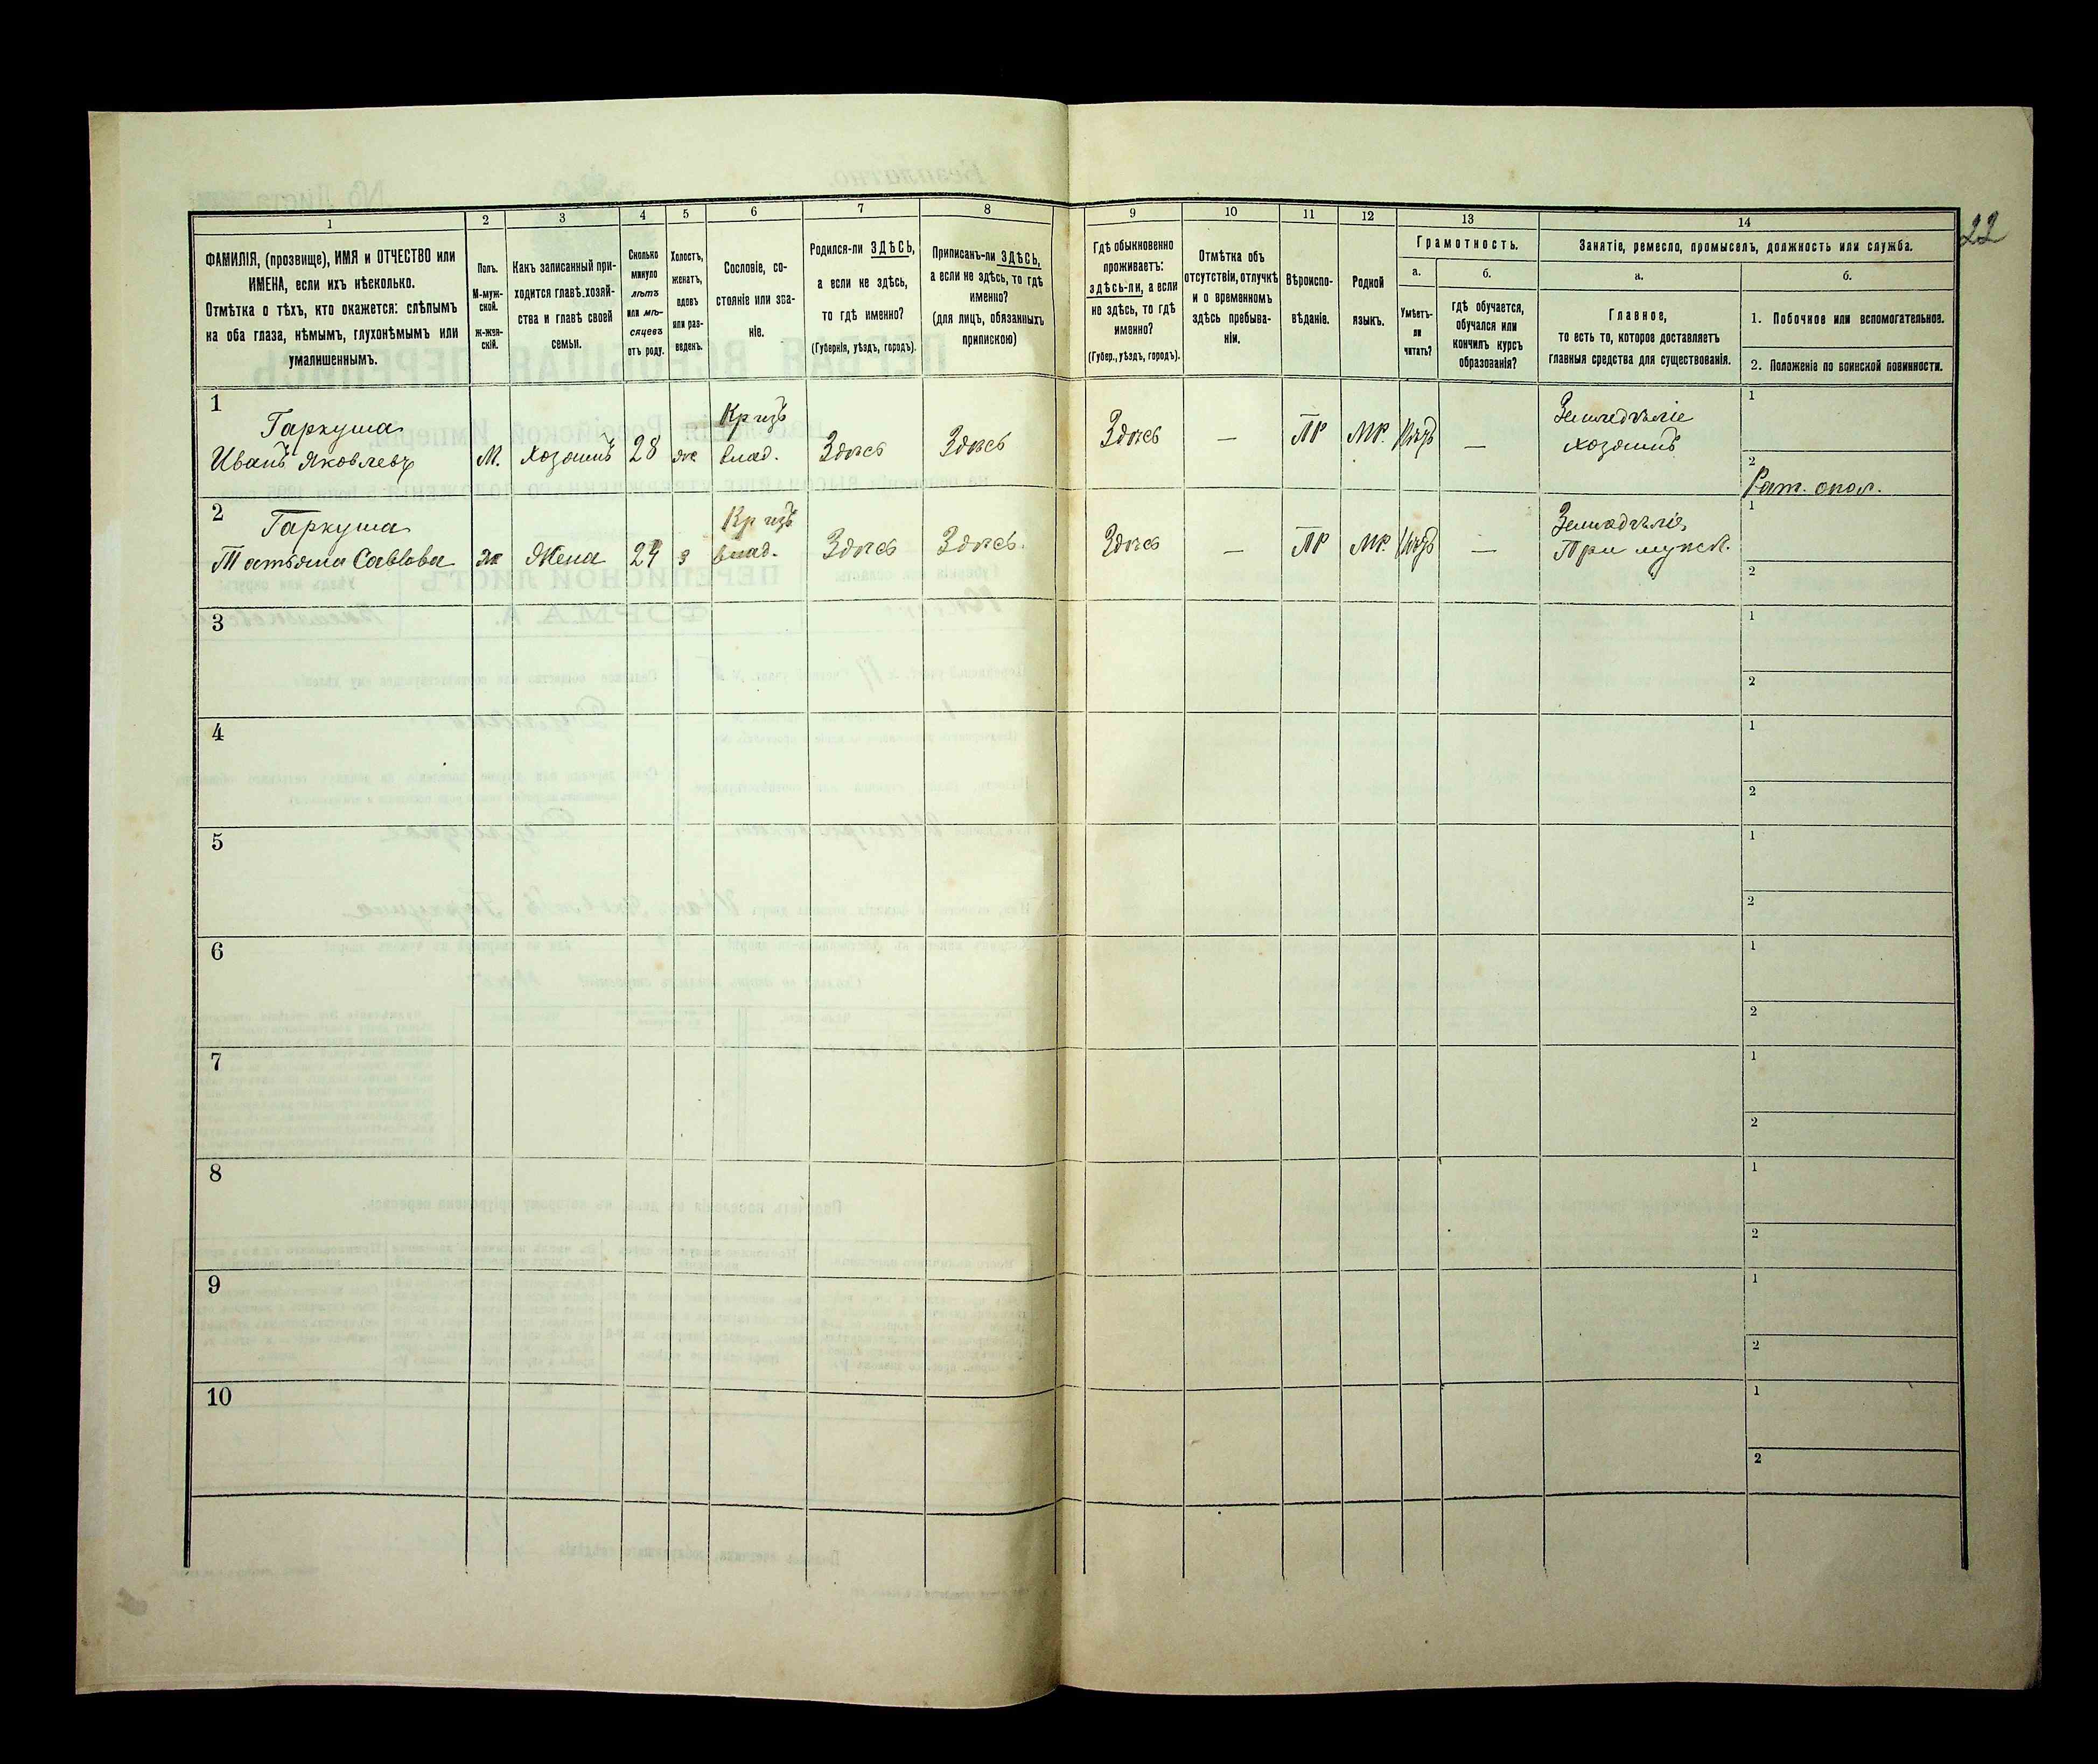 22
1
2
3
4
5
6
7
8
9
10
11
12
13
14
ФАМИЛІЯ, (прозвище), ИМЯ и ОТЧЕСТВО или
ИМЕНА, если ихъ нѣсколько.
Отмѣтка о тѣхъ, кто окажется: слѣпымъ
на оба глаза, нѣмымъ, глухонѣмымъ или
умалишеннымъ.
Полъ.
М-муж-
ской.
Ж-жен-
скій.
Какъ записанный при-
ходится главѣ хозяй-
ства и главѣ своей
семьи.
Сколько
минуло
лѣтъ
или мѣ-
сяцевъ
отъ роду.
Холостъ,
женатъ,
вдовъ
или раз-
веденъ.
Сословіе, со-
стояніе или зва-
ніе.
Родился-ли ЗДѢСЬ,
а если не здѣсь,
то гдѣ именно?
(Губернія, уѣздъ, городъ).
Приписанъ-ли ЗДѢСЬ,
а если не здѣсь, то гдѣ
именно?
(для лицъ, обязанныхъ
припискою)
Гдѣ обыкновенно
проживаетъ:
здѣсь-ли, а если
не здѣсь, то гдѣ
именно?
(Губер., уѣздъ, городъ).
Отмѣтка объ
отсутствіи, отлучкѣ
и о временномъ
здѣсь пребыва-
ніи.
Вѣроиспо-
вѣданіе.
Родной
языкъ.
Грамотность.
а.
Умѣетъ-
ли
читать?
б.
гдѣ обучается,
обучался или
кончилъ курсъ
образованія?
Занятіе, ремесло, промыселъ, должность или служба.
а.
Главное,
то есть то, которое доставляетъ
главныя средства для существованія.
б.
1. Побочное или вспомогательное.
2. Положеніе по воинской повинности.
1
Гаркуша
Иванъ Яковлевъ
М.
Хозяинъ
28
же
Кр изъ
влад.
Здѣсь
Здѣсь
Здѣсь
—
ПР
МР.
—
Земледѣліе
хозяинъ
1
2
Рат. опол.
2
Гаркуша
Татьяна Саввова
ж
Жена
24
з
Кр изъ
влад.
Здѣсь
Здѣсь.
Здѣсь
—
ПР
МР.
—
Земледѣліе
При мужѣ.
1
2
3
1
2
4
1
2
5
1
2
6
1
2
7
1
2
8
1
2
9
1
2
10
1
2